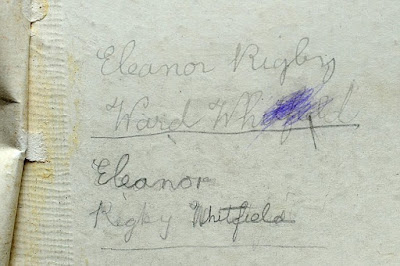 Eleanor Rigby
Ward Whitfield
Eleanor
Rigby Whitfield